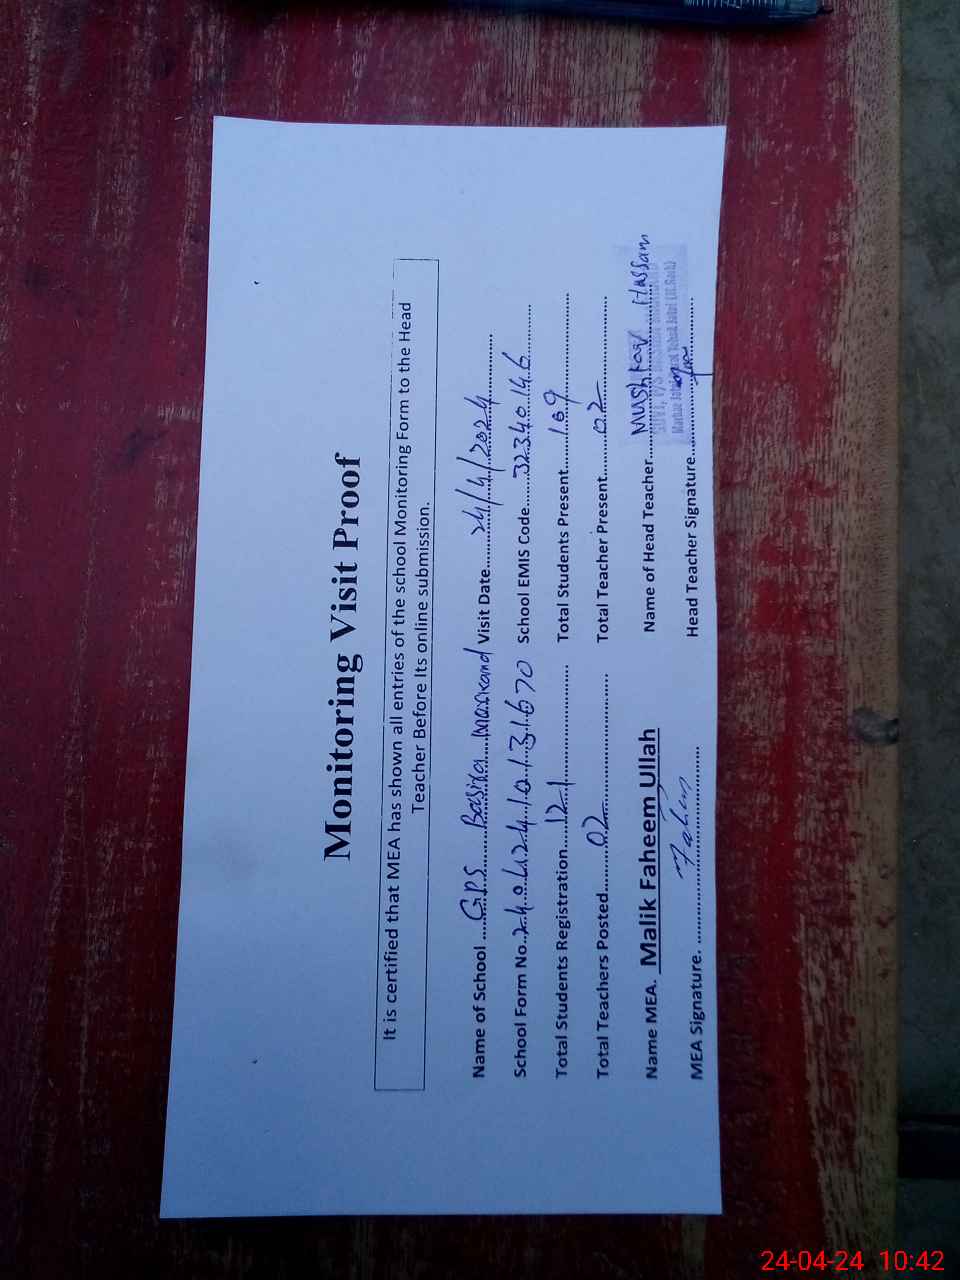 Monitoring Visit Proof
It is certified that MEA has shown all entries of the school Monitoring Form to the Head
Teacher Before Its online submission.
Name of School ......GPS Basira Maskand Visit Date......24/4/2024
School Form No..24042410131670 School EMIS Code......32340146
Total Students Registration......121...... Total Students Present......109
Total Teachers Posted......02...... Total Teacher Present......02
Name MEA. Malik Faheem Ullah Name of Head Teacher......Mushtaq Hassan
MEA Signature. ......Fahim...... Head Teacher Signature......
24-04-24 10:42